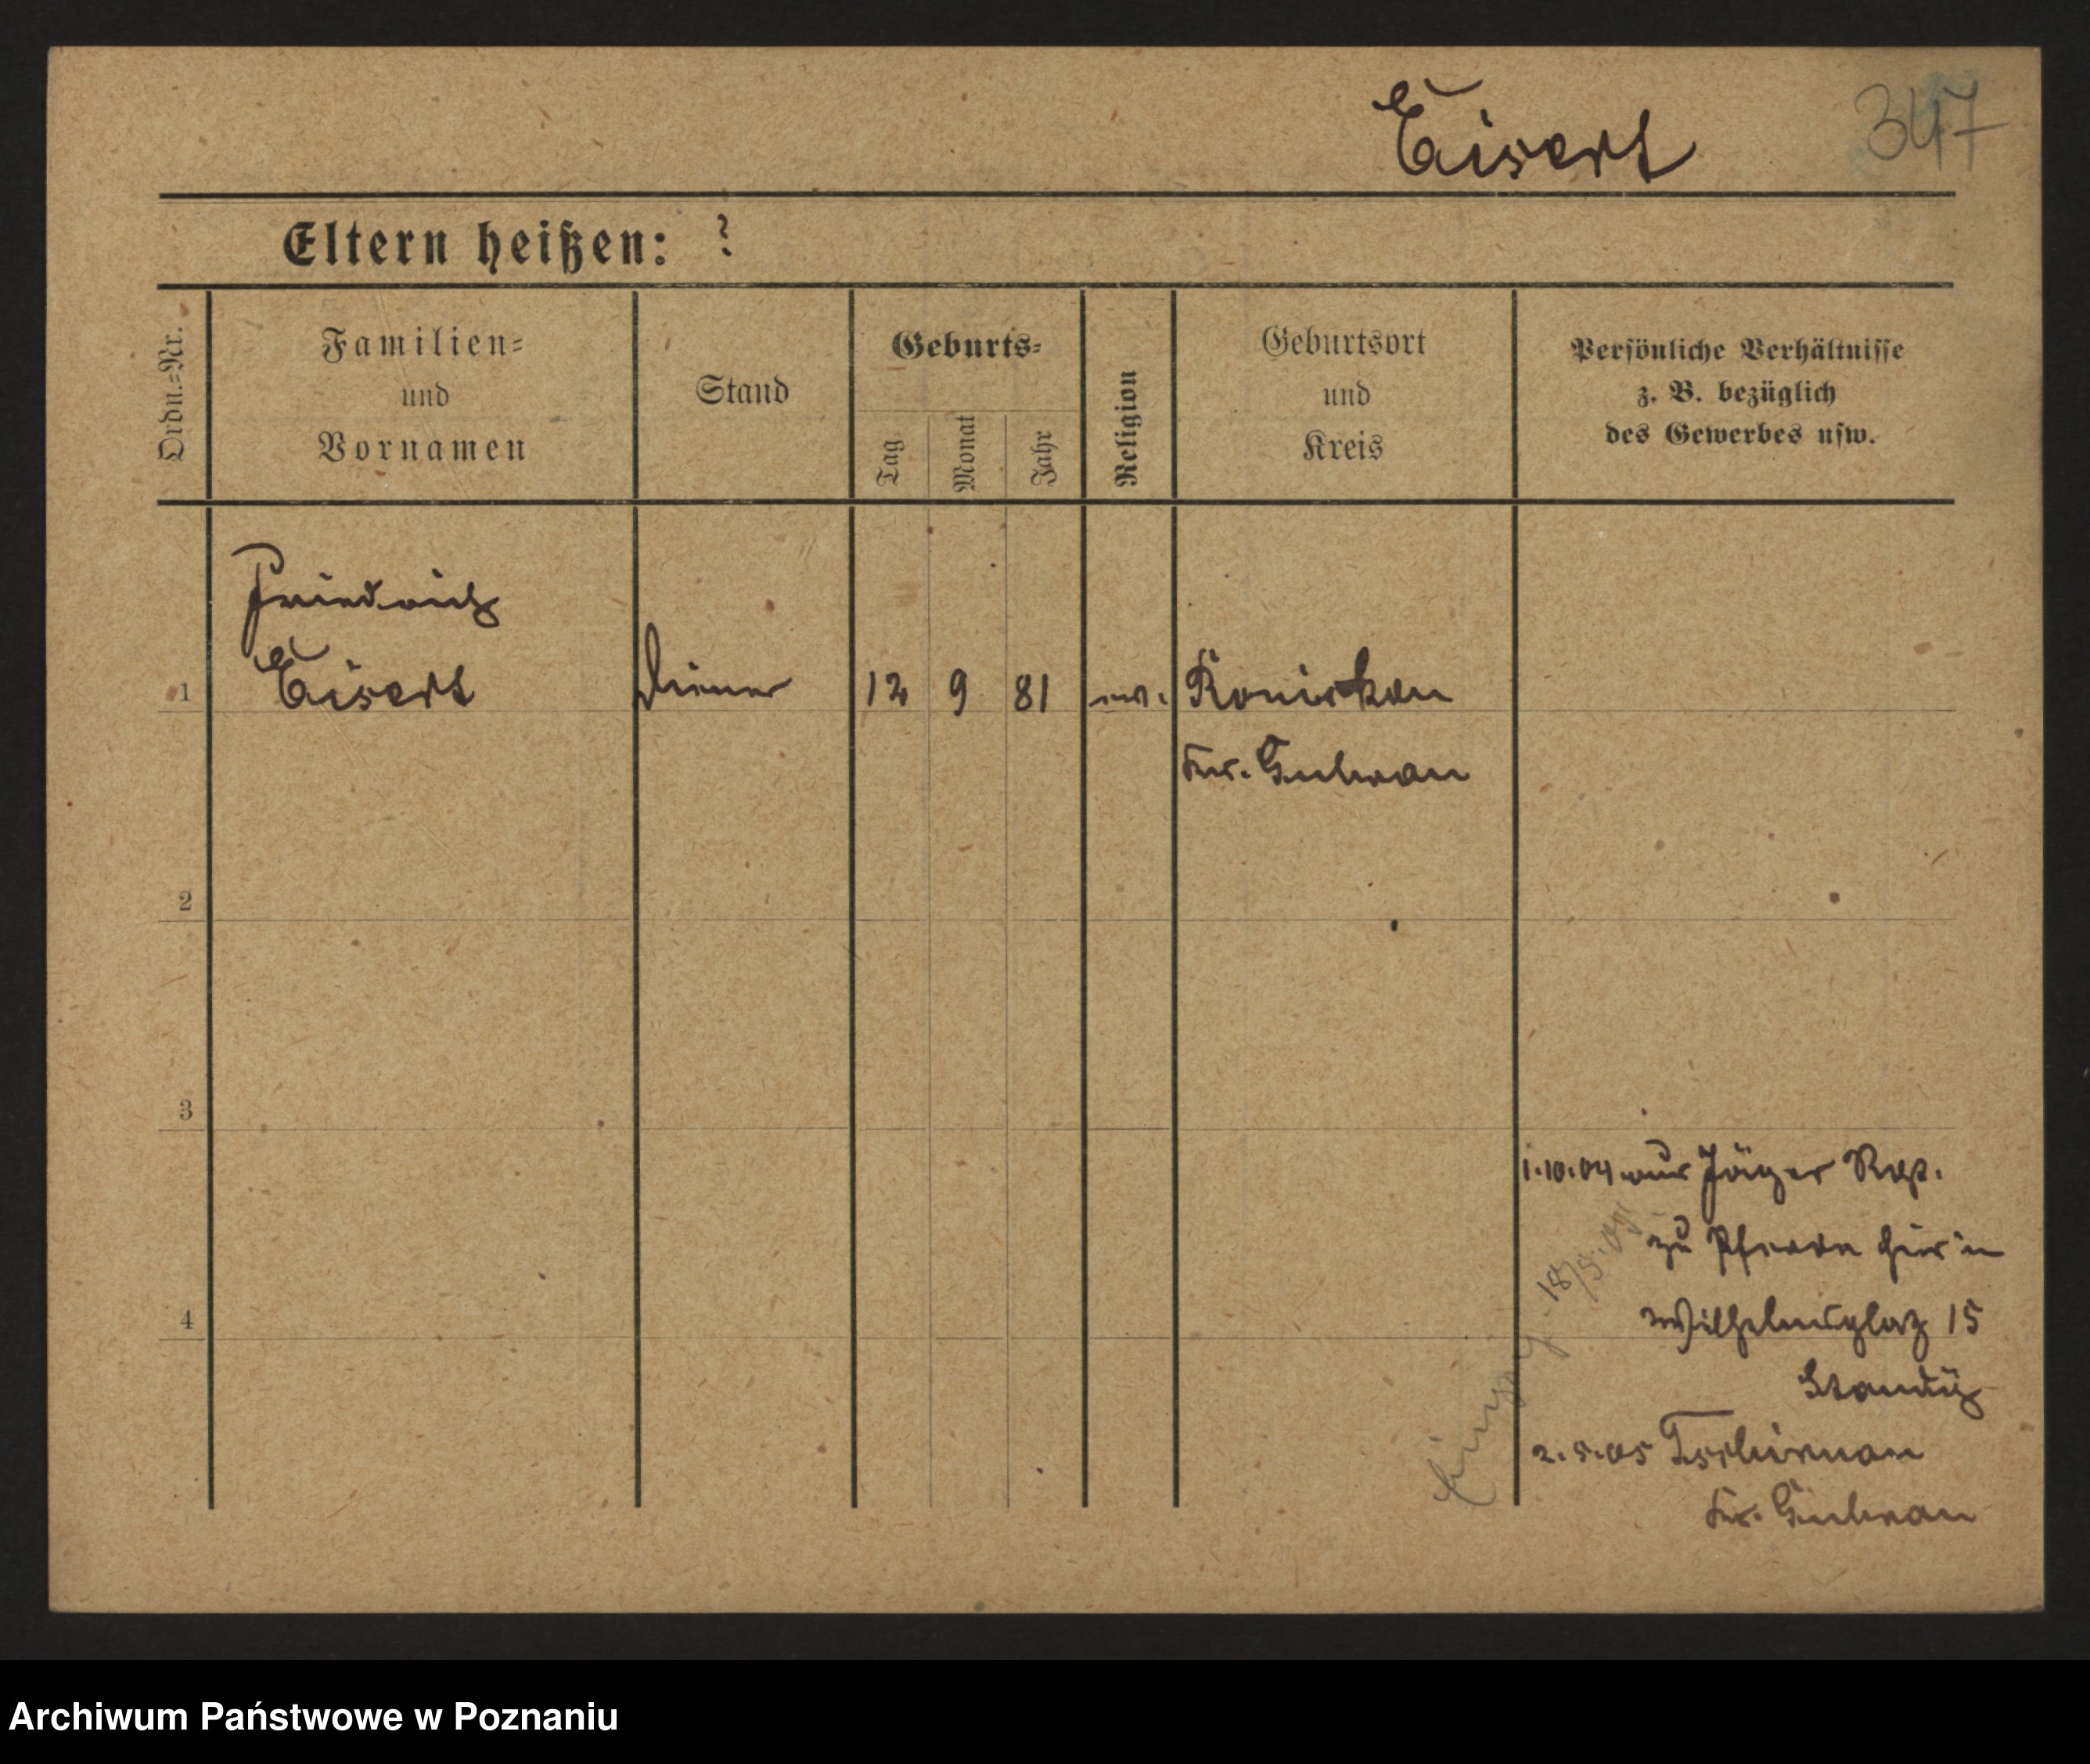 Eisert
347
Eltern heißen: ?
Ordn.=Nr.
Familien=
und
Vornamen
Stand
Geburts=
Tag
Monat
Jahr
Religion
Geburtsort
und
Kreis
Persönliche Verhältnisse
z. B. bezüglich
des Gewerbes usw.
Friedrich
1 Eisert Diener 12 9 81 ev.
Kr. Guhrau
2
3
4
1.10.04 aus Jäger Rgt.
zu Pferde hier in
Wilhelmsplatz 15
2.5.05 Tschirnau
Kr. Guhrau
Archiwum Państwowe w Poznaniu